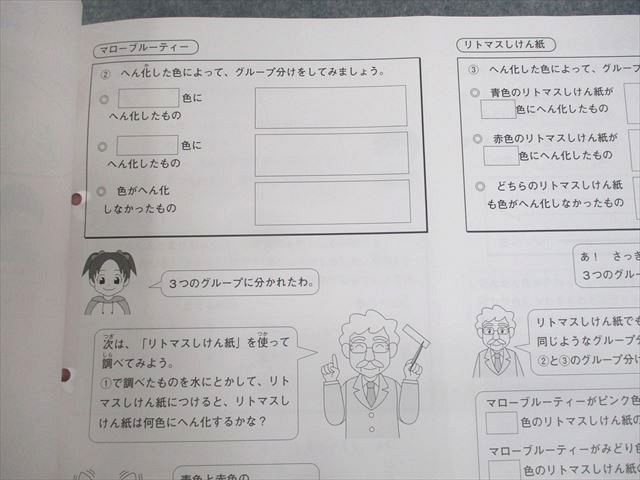 マローブルーティー
② へん化した色によって、グループ分けをしてみましょう。
◎ 色に
へん化したもの
◎ 色に
へん化したもの
◎ 色がへん化
しなかったもの
３つのグループに分かれたわ。
次は、「リトマスしけん紙」を使って
調べてみよう。
①で調べたものを水にとかして、リト
マスしけん紙につけると、リトマスし
けん紙は何色にへん化するかな？
青色と赤色の
リトマスしけん紙
③ へん化した色によって、グルー
◎ 青色のリトマスしけん紙が
色にへん化したもの
◎ 赤色のリトマスしけん紙が
色にへん化したもの
◎ どちらのリトマスしけん紙
も色がへん化しなかったもの
あ！ さっき
３つのグルー
リトマスしけん紙でも
同じようなグループ分
②と③のグループ分け
マローブルーティーがピンク色
色のリトマスしけん紙の
マローブルーティーがみどり色
色のリトマスしけん紙の